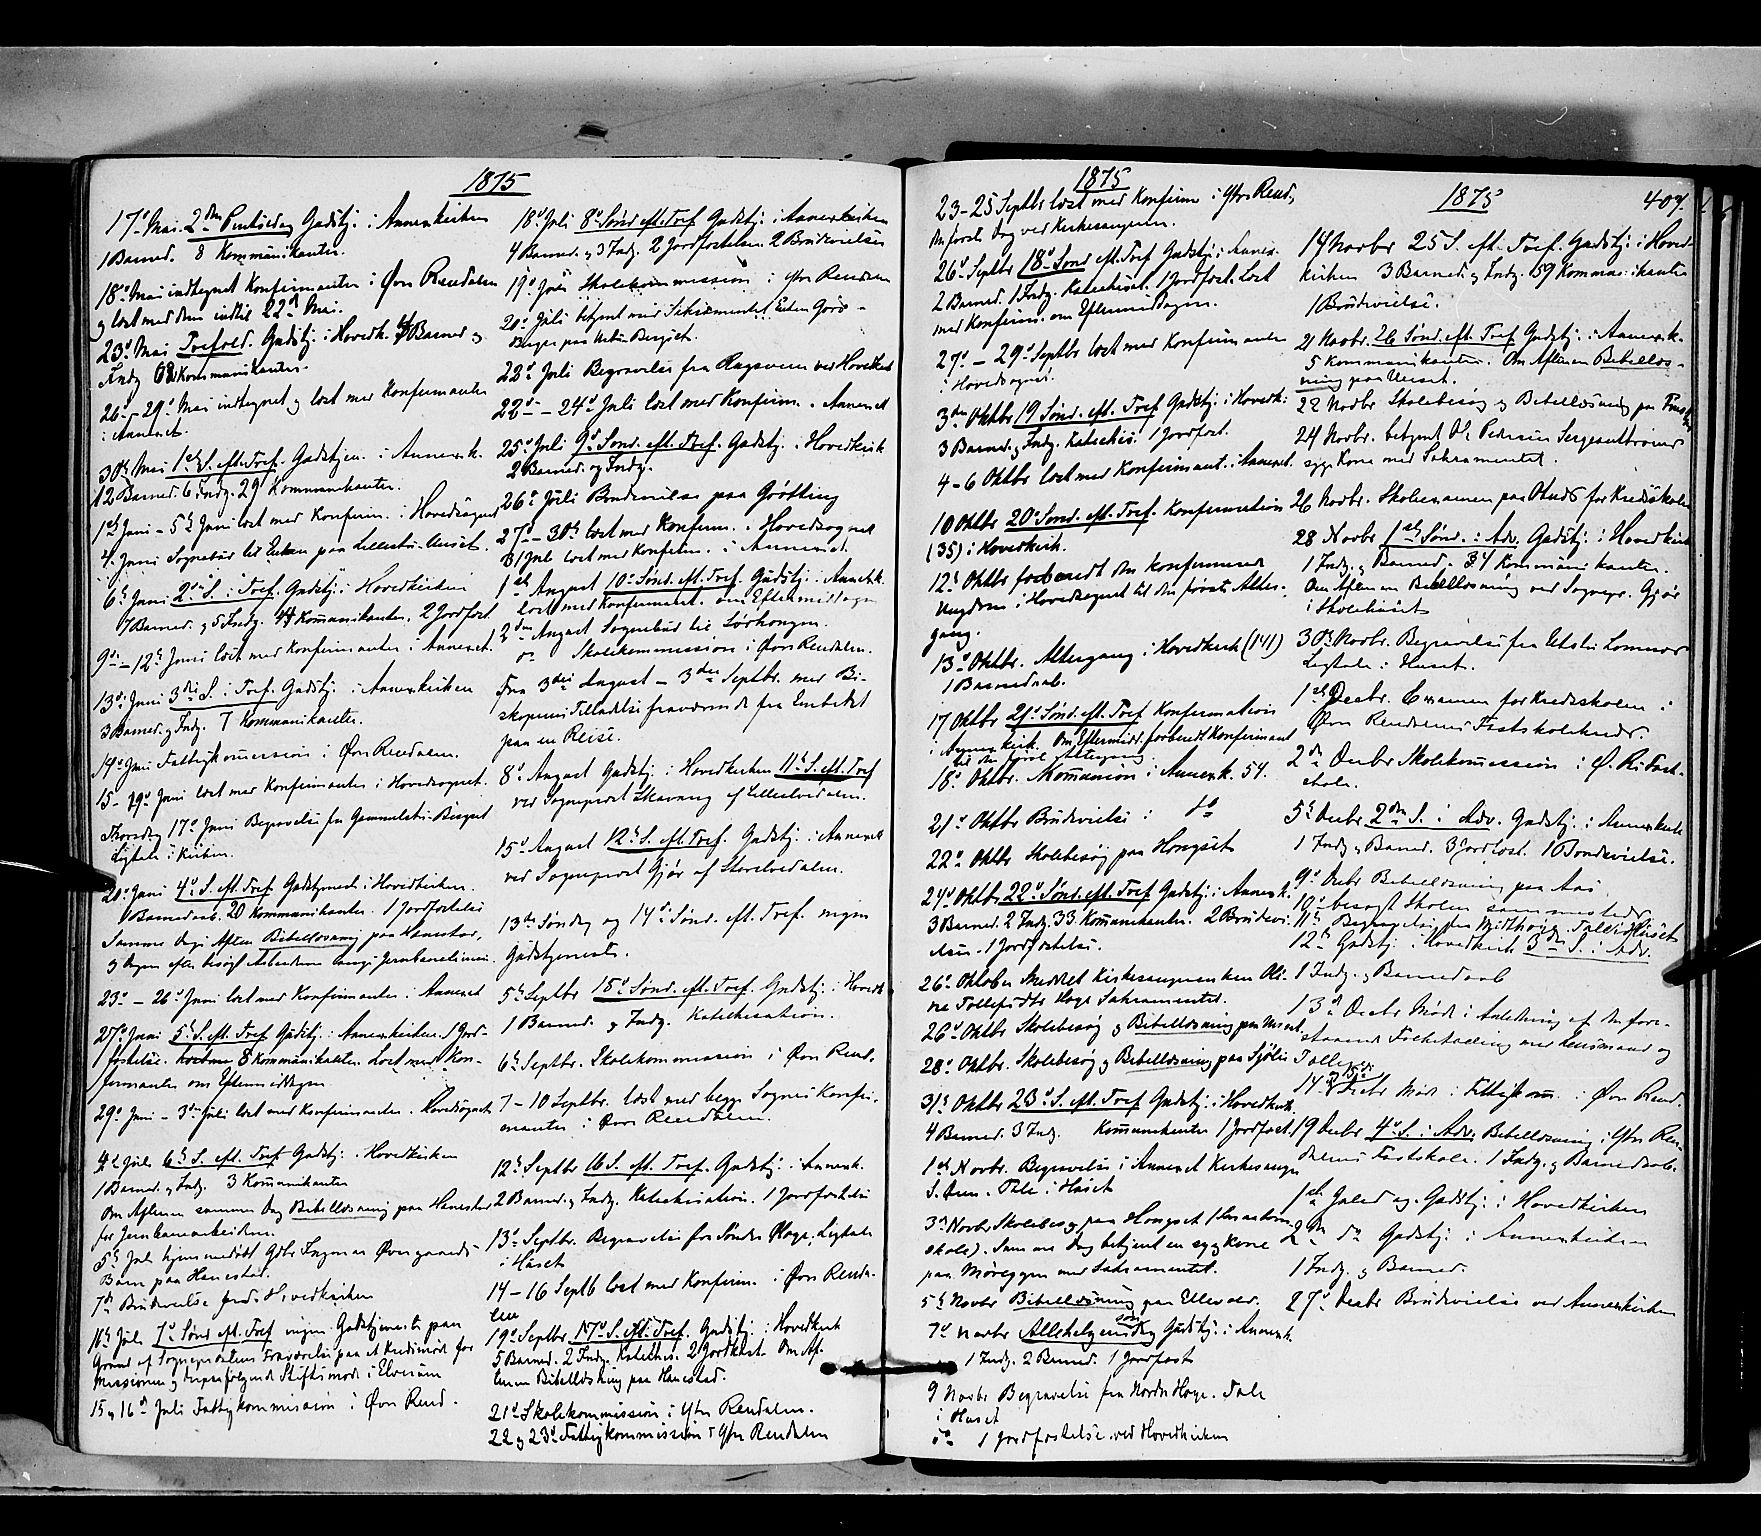 1875
17de Mai. 2den Pintsedag Gudstj. i Annexkirken
1 Barned. 8 Kommunikanter.
18de Mai indtegnet Konfirmanter i Øvre Rendalen
og læst med dem indtil 22de Mai.
23de Mai Trefold. Gudstj. i Hovedk. Barned. og
Indg. Kommunikanter.
26de-29de Mai indtegnet og læst med Konfirmanter
i Annexet.
30te Mai 1ste S. eft. Tref. Gudstjen. i Annexk.
12 Barned. 6 Indg. 29 Kommunikanter.
1ste Juni - 5te Juni læst med Konfirm. i Hovedsognet
4. Juni Sognebud til Enken paa
6te Juni 2den S. i Tref. Gudstj. i Hovedkirken
7 Barned. og 5 Indg. 44 Kommunikanter. 2 Jordfost.
9de-12te Juni læst med Konfirmanter i Annexet.
13de Juni 3die S. i Tref. Gudstj. i Annexkirken
3 Barned. og Indg. 7 Kommunikanter.
14de Juni Fattigkommission i Øvre Rendalen.
15-19de Juni læst med Konfirmanter i Hovedsognet.
Thorsdag 17de Juni Begravelse fra
Ligtale i Kirken.
20de Juni 4de S. eft. Tref. Gudstjeneste i Hovedkirken.
1 Barnedaab. 20 Kommunikanter. 1 Jordfæstelse
Samme Dags Aften Bibellæsning paa Hanestad,
Dagen efter besøgt Arbeiderne langs Jernbanelinien.
23de - 26de Juni læst med Konfirmanter i Annexet
27de Juni 5te S. eft. Tref. Gudstj. i Annexkirken. 1 Jord-
fæstelse. 8 Kommunikanter. Læst med Kon-
firmanter om Eftermiddagen
29de Juni - 3die Juli læst med Konfirmanter i Hovedsognet
4de Juli 6te S. eft. Tref. Gudstj. i Hovedkirken
1 Barned. og Indg. 3 Kommunikanter
Om Aftenen samme Dag Bibellæsning paa Hanestad
for Jernbanearbeiderne.
5te Juli hjemmedøbt Gbr. Ingvar Øvregaards
Barn paa Hanestad.
7de Brudevielse ved Hovedkirken
11te Juli 7de Sønd. eft. Tref. ingen Gudstjeneste paa
Grund af Sognepræstens Fraværelse paa et Kredsmøde for
Missionen og derpaafølgende Stiftsmøde i Elverum
15 og 16de Juli Fattigkommission i Øvre Rend.
18de Juli 8de Sønd. eft. Tref. Gudstj. i Annexkirken
4 Barned. og 3 Indg. 2 Jordfæstelser. 2 Brudevielser
19de Juli Skolekommission i Ytre Rendalen
20de Juli betjent med Sakramentet Enken Goro
Berger paa
22de Juli Begravelse fra Haugsveen ved Hovedkirk
22de - 24de Juli læst med Konfirm. i Annexet
25de Juli 9de Sønd. eft. Tref. Gudstj. i Hovedkirk
2 Barned. og Indg.
26de Juli Brudevielse paa Grøtting
27de - 30te læst med Konfirm. i Hovedsognet
31 Juli læst med Konfirm. i Annexet.
1ste August 10de Sønd. eft. Tref. Gudstj. i Annexk.
læst med Konfirmant. om Eftermiddagen
2den August Sognebud til
do Skolekommission i Øvre Rendalen.
Fra 3die August - 3die Septbr. med Bi-
skopens Tilladelse fraværende fra Embedet
paa en Reise.
8de August Gudstj. i Hovedkirken 11te S. eft. Tref
ved Sognepræst Skavang af Lilleelvedalen.
15de August 12te S. eft. Tref. Gudstj. i Annexet
ved Sognepræst Gjør af Storelvedalen.
13de Søndag og 14de Sønd. eft. Tref. ingen
Gudstjeneste.
5te Septbr 15de Sønd. eft. Tref. Gudstj. i Hovedk.
1 Barned. og Indg. Katekisation.
6te Septbr. Skolekommission i Øvre Rend.
7-10 Septbr. læst med begge Sognes Konfir-
manter i Øvre Rendalen.
12te Septbr 16 S. eft. Tref. Gudstj. i Annexk.
2 Barned. og Indg. Katekisation. 1 Jordfæstelse
13de Septbr. Begravelse fra Søndre Hoge, Ligtale
i Huset
14-16 Septb læst med Konfirm. i Øvre Renda-
len
19de Septbr. 17de S. eft. Tref. Gudstj. i Hovedkirk
5 Barned. 2 Indg. Kateches. 2 Jordfæst. Om Af-
tenen Bibellæsning paa Hanestad.
21de Skolekommission i Ytre Rendalen.
22 og 23de Fattigkommission i Ytre Rendalen
1875
23-25 Septbr læst med Konfirm. i Ytre Rend.,
den første Dag ved Kirkesangeren.
26de Septbr 18de Sønd. eft. Tref. Gudstj. i Annex.
2 Barned. 1 Indg. Katechisat. 1 Jordfæst. Læst
med Konfirm. om Eftermiddagen.
27de - 29de Septbr læst med Konfirmanter
i Hovedsognet.
3die Oktbr 19 Sønd. eft. Tref. Gudstj. i Hovedk.
3 Barned. og Indg. Katechis. 1 Jordfæst.
4-6 Oktbr læst med Konfirmant. i Annexet.
10 Oktbr 20de Sønd. eft. Tref. Konfirmation
(35) i Hovedkirk.
12te Oktbr forberedt den konfirmerede
Ungdom i Hovedsognet til den første Alter-
gang.
13de Oktbr. Altergang i Hovedkirk (141)
1 Barnedaab.
17 Oktbr 21de Sønd. eft. Tref. Konfirmation
i Annexkirk. Om Eftermidd. forberedt Konfirmant
til den første Altergang
18de Oktbr. Kommunion i Annexk. 54.
21de Oktbr Brudevielse i do
22de Oktbr Skolebesøg paa Hongset
24de Oktbr 22de Sønd. eft. Tref. Gudstj. i Annexk.
3 Barned. 2 Indg. 33 Kommunikanter. 2 Brudevi-
elser. 1 Jordfæstelse.
26de Oktober meddelt Kirkesangerenken Oli-
ne Tollefsdtr Hoge Sakramentet.
26de Oktbr Skolebesøg og Bibellæsning paa Unset.
28de Oktbr. Skolebesøg og Bibellæsning paa Sjølie
31te Oktbr 23de S. eft. Tref. Gudstj. i Hovedkirk.
4 Barned. 3 Indg. Kommunikanter 1 Jordfæst.
1ste Novbr. Begravelse i Annexet Kirkesanger
Tale i Huset
3die Novbr Skolebesøg paa Hongset
skole). Samme Dag betjent en syg Kone
paa Møreggen med Sakramentet.
5te Novbr Bibellæsning paa
7de Novbr Allehelgensdag Gudstj. i Annexk.
1 Indg. 2 Barned. 1 Jordfæst
9 Novbr Begravelse fra Nordre Hoge. Tale
i Huset
do 1 Jordfæstelse ved Hovedkirken
1875
407.
14 Novbr 25 S. eft. Tref. Gudstj. i Hoved-
kirken 3 Barned. og Indg. 59 Kommunikanter
1 Brudevielse.
21 Novbr. 26 Sønd. eft. Tref Gudstj. i Annexk.
5 Kommunikanter. Om Aftenen Bibellæs-
ning paa Unset.
22 Novbr Skolebesøg og Bibellæsning paa
24 Novbr. betjent Ole Pedersen Bergsætbroens
syge Kone med Sakramentet.
26 Novbr. Skoleexamen paa for Kredsskolen
28 Novbr 1ste Sønd. i Adv. Gudstj. i Hovedkirk
1 Indg. og Barned. 34 Kommunikanter.
Om Aftenen Bibellæsning ved Sognepr. Gjør
i Skolehuset
30te Novbr. Begravelse fra
Ligtale i Huset.
1ste Decbr. Examen for Kredsskolen i
Øvre Rendalens Fastskolekreds.
2den Decbr Skolekommission i Ø. R. Fast-
skole.
5te Decbr 2den S. i Adv. Gudstj. i Annexkirk
1 Indg. og Barned. 3 Jordfæst. 1 Brudevielse.
9de Decbr Bibellæsning paa Aas
10de besøgt Skolen sammesteds
11te Begravelse fra Midthoge Tale i Huset
12te Gudstj. i Hovedkirk. 3die S. i Adv.
1 Indg. og Barnedaab
13de Decbr Møde i Anledning af den fore-
staaende Folketælling med Lensmand og
Tællere
14 og 15de Decbr Møde i Fattigkom. i Øvre Rend.
19 Decbr 4de S. i Adv. Bibellæsning i Ytre Ren-
dalens Fastskole. 1 Indg. og Barnedaab.
1ste Juledag. Gudstj. i Hovedkirken
2den do Gudstj. i Annexkirken
1 Indg. og Barned.
27de Decbr Brudevielse ved Annexkirken